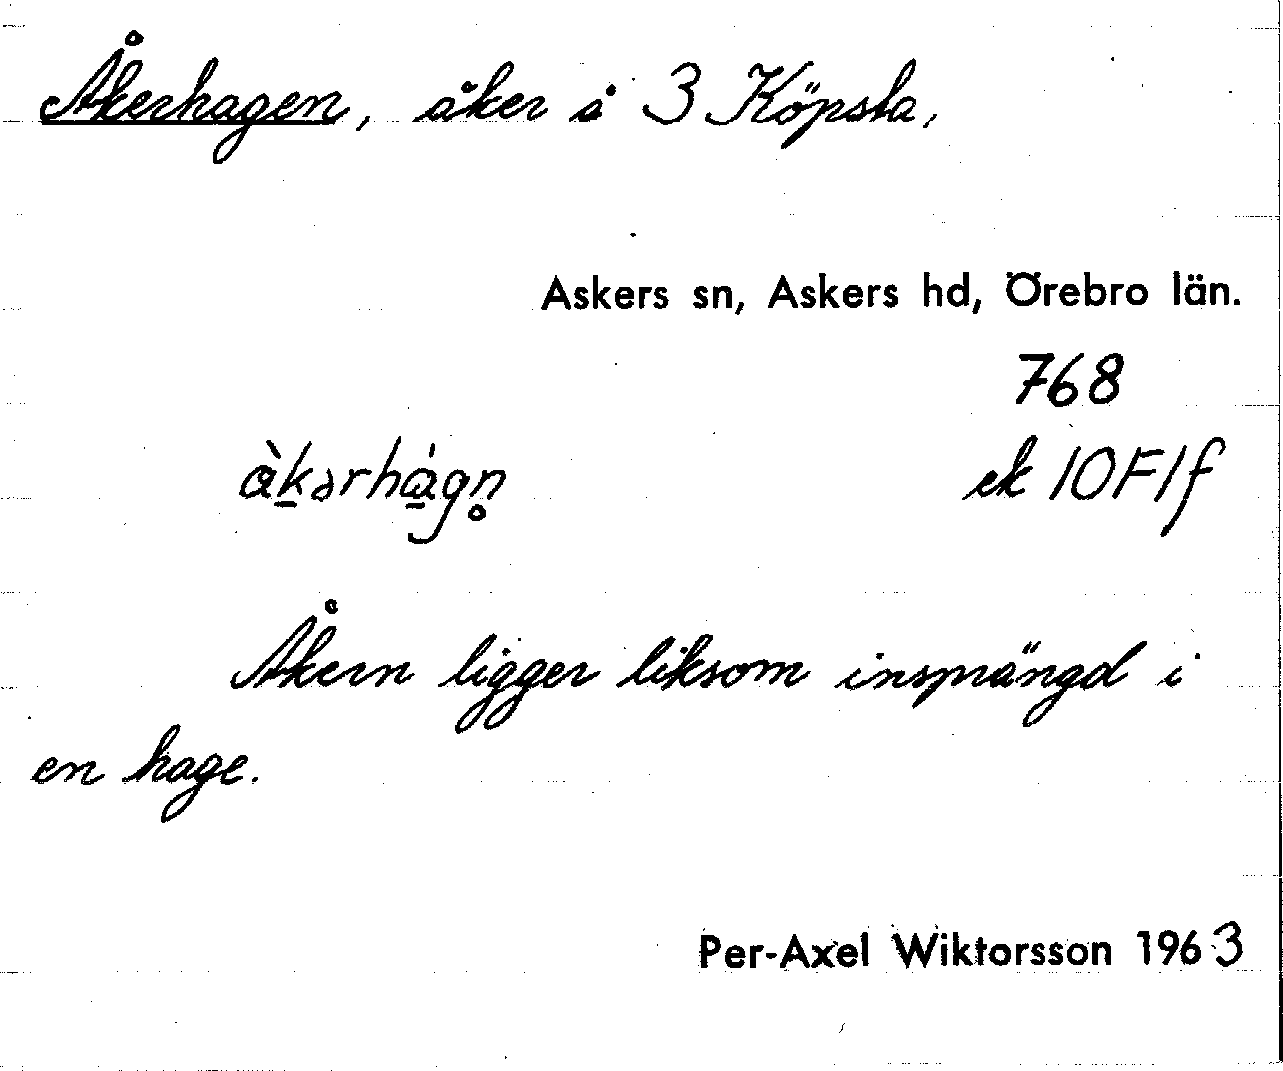 Åkerhagen, åker å 3 Köpsta,
Askers sn, Askers hd, Örebro län.
768
ek 10F1f
Åkern ligger liksom insprängd i
en hage.
Per-Axel Wiktorsson 1963